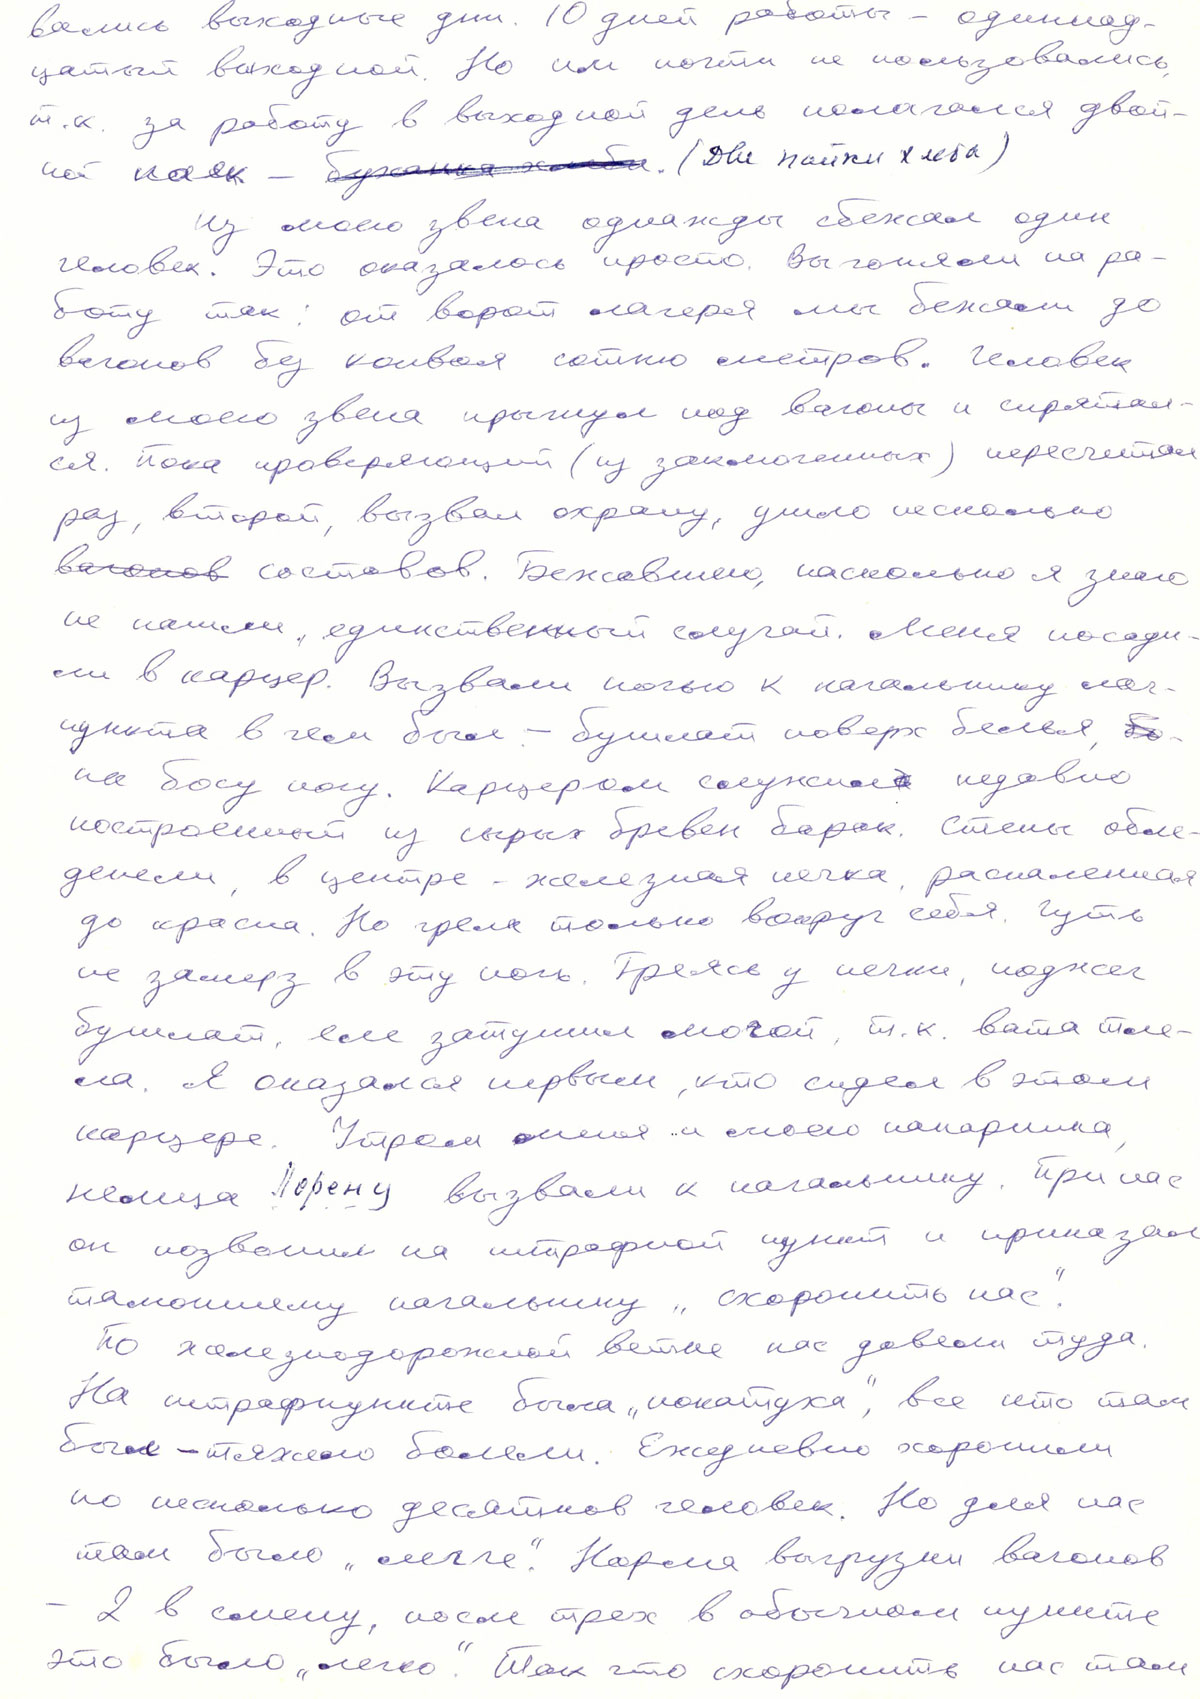 вались выходные дни. 10 дней работы – одиннад-
цатый выходной. Но им почти не пользовались,
т.к. за работу в выходной день полагался двой-
ной паек – буханка хлеба. (Две пайки хлеба)
Из моего звена однажды сбежал один
человек. Это оказалось просто. Выгоняли на ра-
боту так: от ворот лагеря мы бежали до
вагонов без конвоя сотню метров. Человек
из моего звена прыгнул под вагоны и спрятал-
ся. Пока проверяющий (из заключенных) пересчитал
раз, второй, вызвал охрану, ушло несколько
вагонов составов. Бежавшего, насколько я знаю
не нашли, единственный случай. Меня посади-
ли в карцер. Вызвали ночью к начальнику лаг-
пункта в чем был – бушлат поверх белья, бо-
на босу ногу. Карцером служил недавно
построенный из сырых бревен барак. Стены обле-
денели, в центре – железная печка, распаленная
до красна. Но грела только вокруг себя. Чуть
не замерз в эту ночь. Греясь у печки, поджег
бушлат, еле затушил мочой, т.к. вата тле-
ла. Я оказался первым, кто сидел в этом
карцере. Утром меня и моего напарника,
немца Лорену вызвали к начальнику. При нас
он позвонил на штрафной пункт и приказал
тамошнему начальнику „схоронить нас“.
По железнодорожной ветке нас довели туда.
На штрафпункте была „покатуха“, все кто там
был – тяжело болели. Ежедневно хоронили
по несколько десятков человек. Но для нас
там было „легче“. Норма выгрузки вагонов
– 2 в смену, после трех в обычном пункте
это было „легко“. Так что схоронить нас там